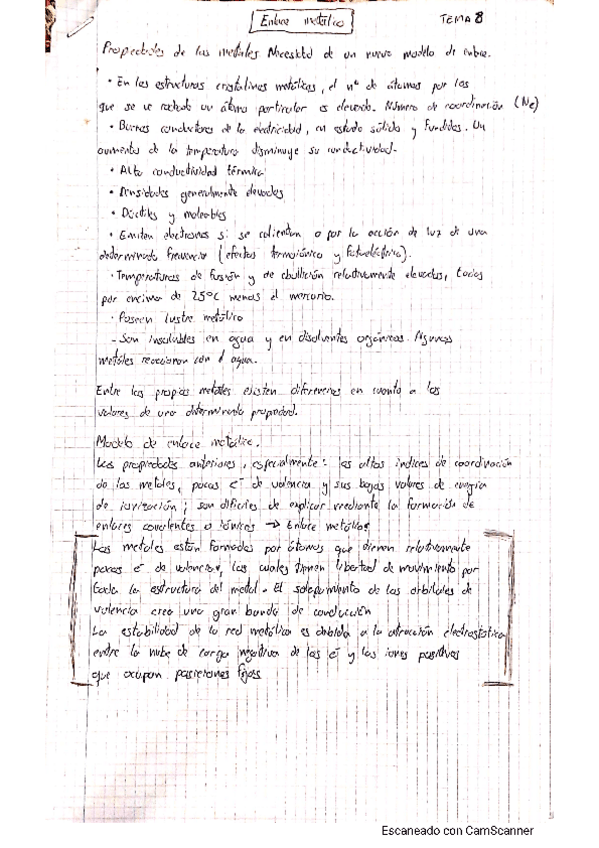 Enlace metálico
TEMA 8
Propiedades de los metales. Necesidad de un nuevo modelo de enlace.
• En las estructuras cristalinas metálicas, el nº de átomos por los
que se ve rodeado un átomo particular es elevado. Número de coordinación (Nc)
• Buenos conductores de la electricidad, en estado sólido y fundidos. Un
aumento de la temperatura disminuye su conductividad.
• Alta conductividad térmica
• Densidades generalmente elevadas
• Dúctiles y maleables
• Emiten electrones si se calientan o por la acción de luz de una
determinada frecuencia (efectos termoiónico y fotoeléctrico).
• Temperaturas de fusión y de ebullición relativamente elevadas, todos
por encima de 25ºC menos el mercurio.
• Poseen lustre metálico
- Son insolubles en agua y en disolventes orgánicos. Algunos
metales reaccionan con el agua.
Entre los propios metales existen diferencias en cuanto a los
valores de una determinada propiedad.
Modelo de enlace metálico.
Las propiedades anteriores, especialmente: los altos índices de coordinación
de los metales, pocos e⁻ de valencia y sus bajos valores de energía
de ionización; son difíciles de explicar mediante la formación de
enlaces covalentes o iónicos → Enlace metálico
Los metales están formados por átomos que tienen relativamente
pocos e⁻ de valencia, los cuales tienen libertad de movimiento por
toda la estructura del metal. El solapamiento de los orbitales de
valencia crea una gran banda de conducción
La estabilidad de la red metálica es debida a la atracción electrostática
entre la nube de carga negativa de los e⁻ y los iones positivos
que ocupan posiciones fijas
Escaneado con CamScanner